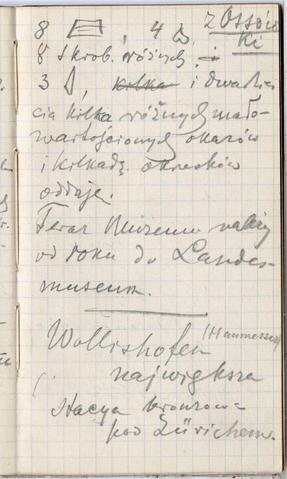 8 , 4 z Ossow
ki
8 skrob. różnych i
3 , kilka i dwadzie
cia kilka różnych mało-
wartościowych okazów
i kilkadz. okresków
oddaje.
Teraz Muzeum należy
od roku do Landes-
museum.
Wollishofen (Haumesser)
największa
stacya bronzowa
pod Zürichem.